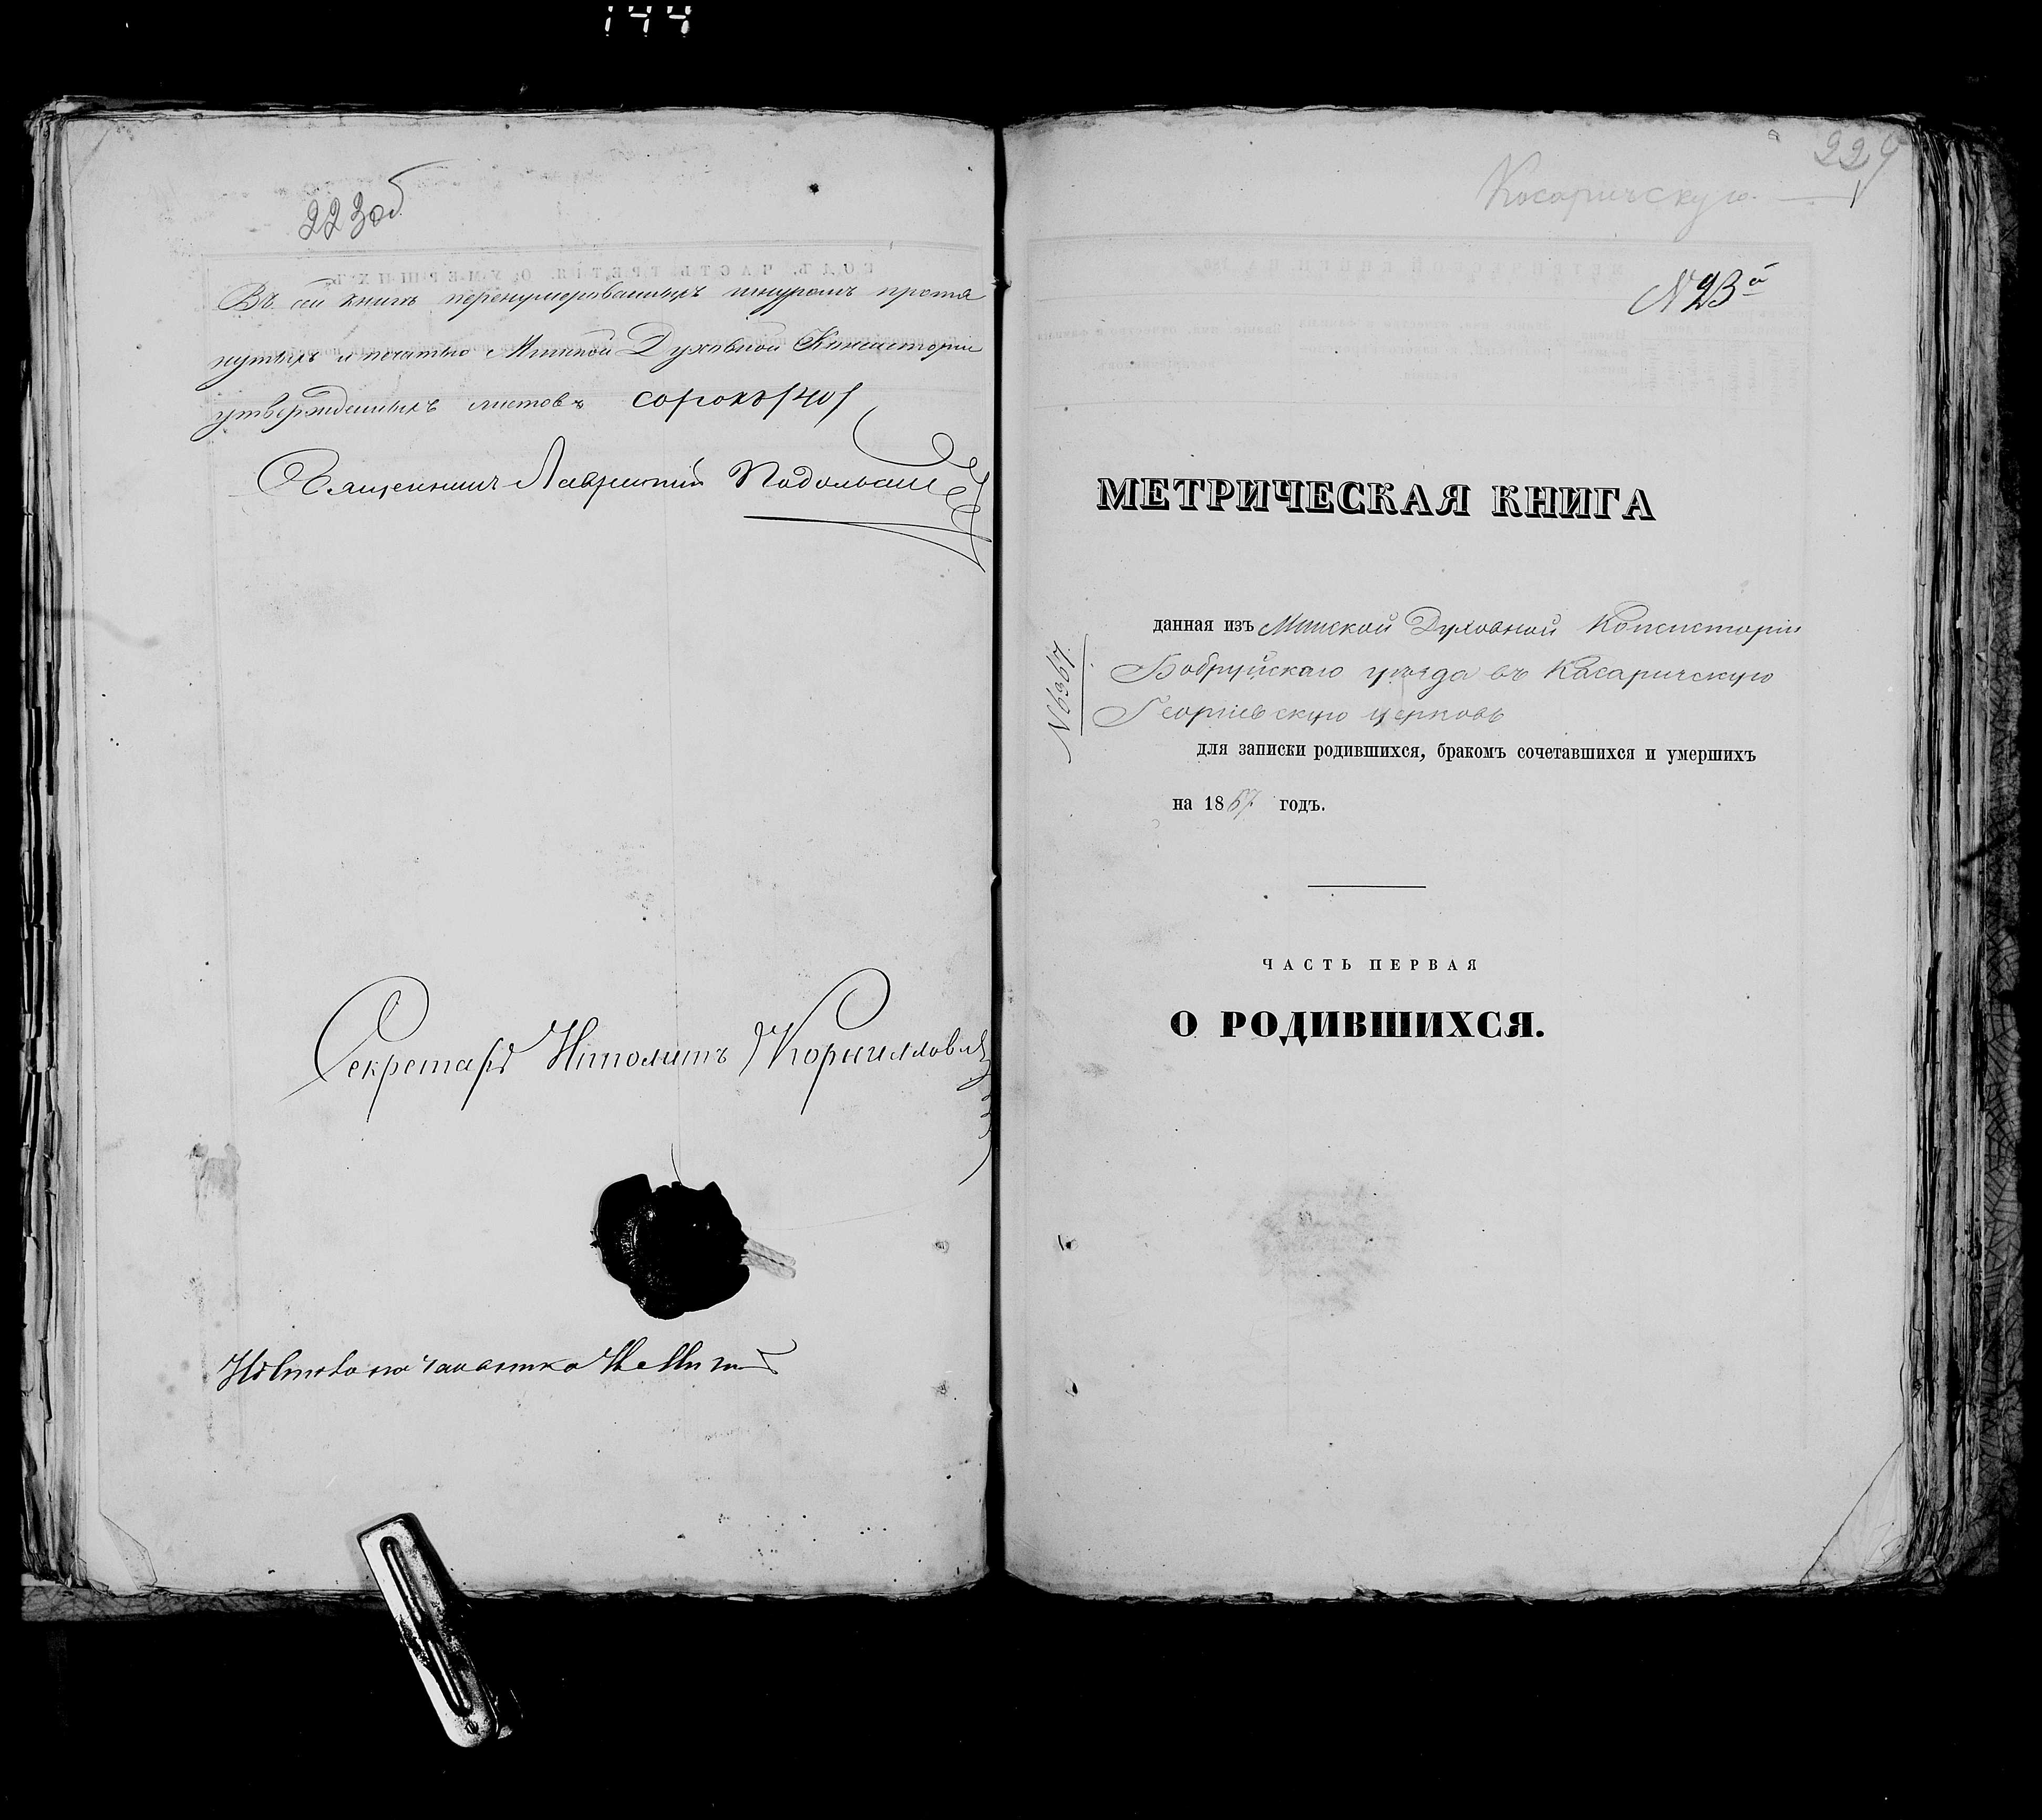 144
223 об
Въ сей книгѣ перенумерованныхъ шнуромъ протя
нутыхъ и печатью Минской Духовной Консисторіи
утвержденныхъ листовъ сорокъ /40/
Священникъ Лаврентій
Секретарь Ипполитъ
224
Косаричскую.
N 23й
МЕТРИЧЕСКАЯ КНИГА
N 6367.
данная изъ Минской Духовной Консисторіи
Бобруйскаго уѣзда въ Касаричскую
Георгіевскую церковь
для записки родившихся, бракомъ сочетавшихся и умершихъ
на 1867 годъ.
ЧАСТЬ ПЕРВАЯ
О РОДИВШИХСЯ.